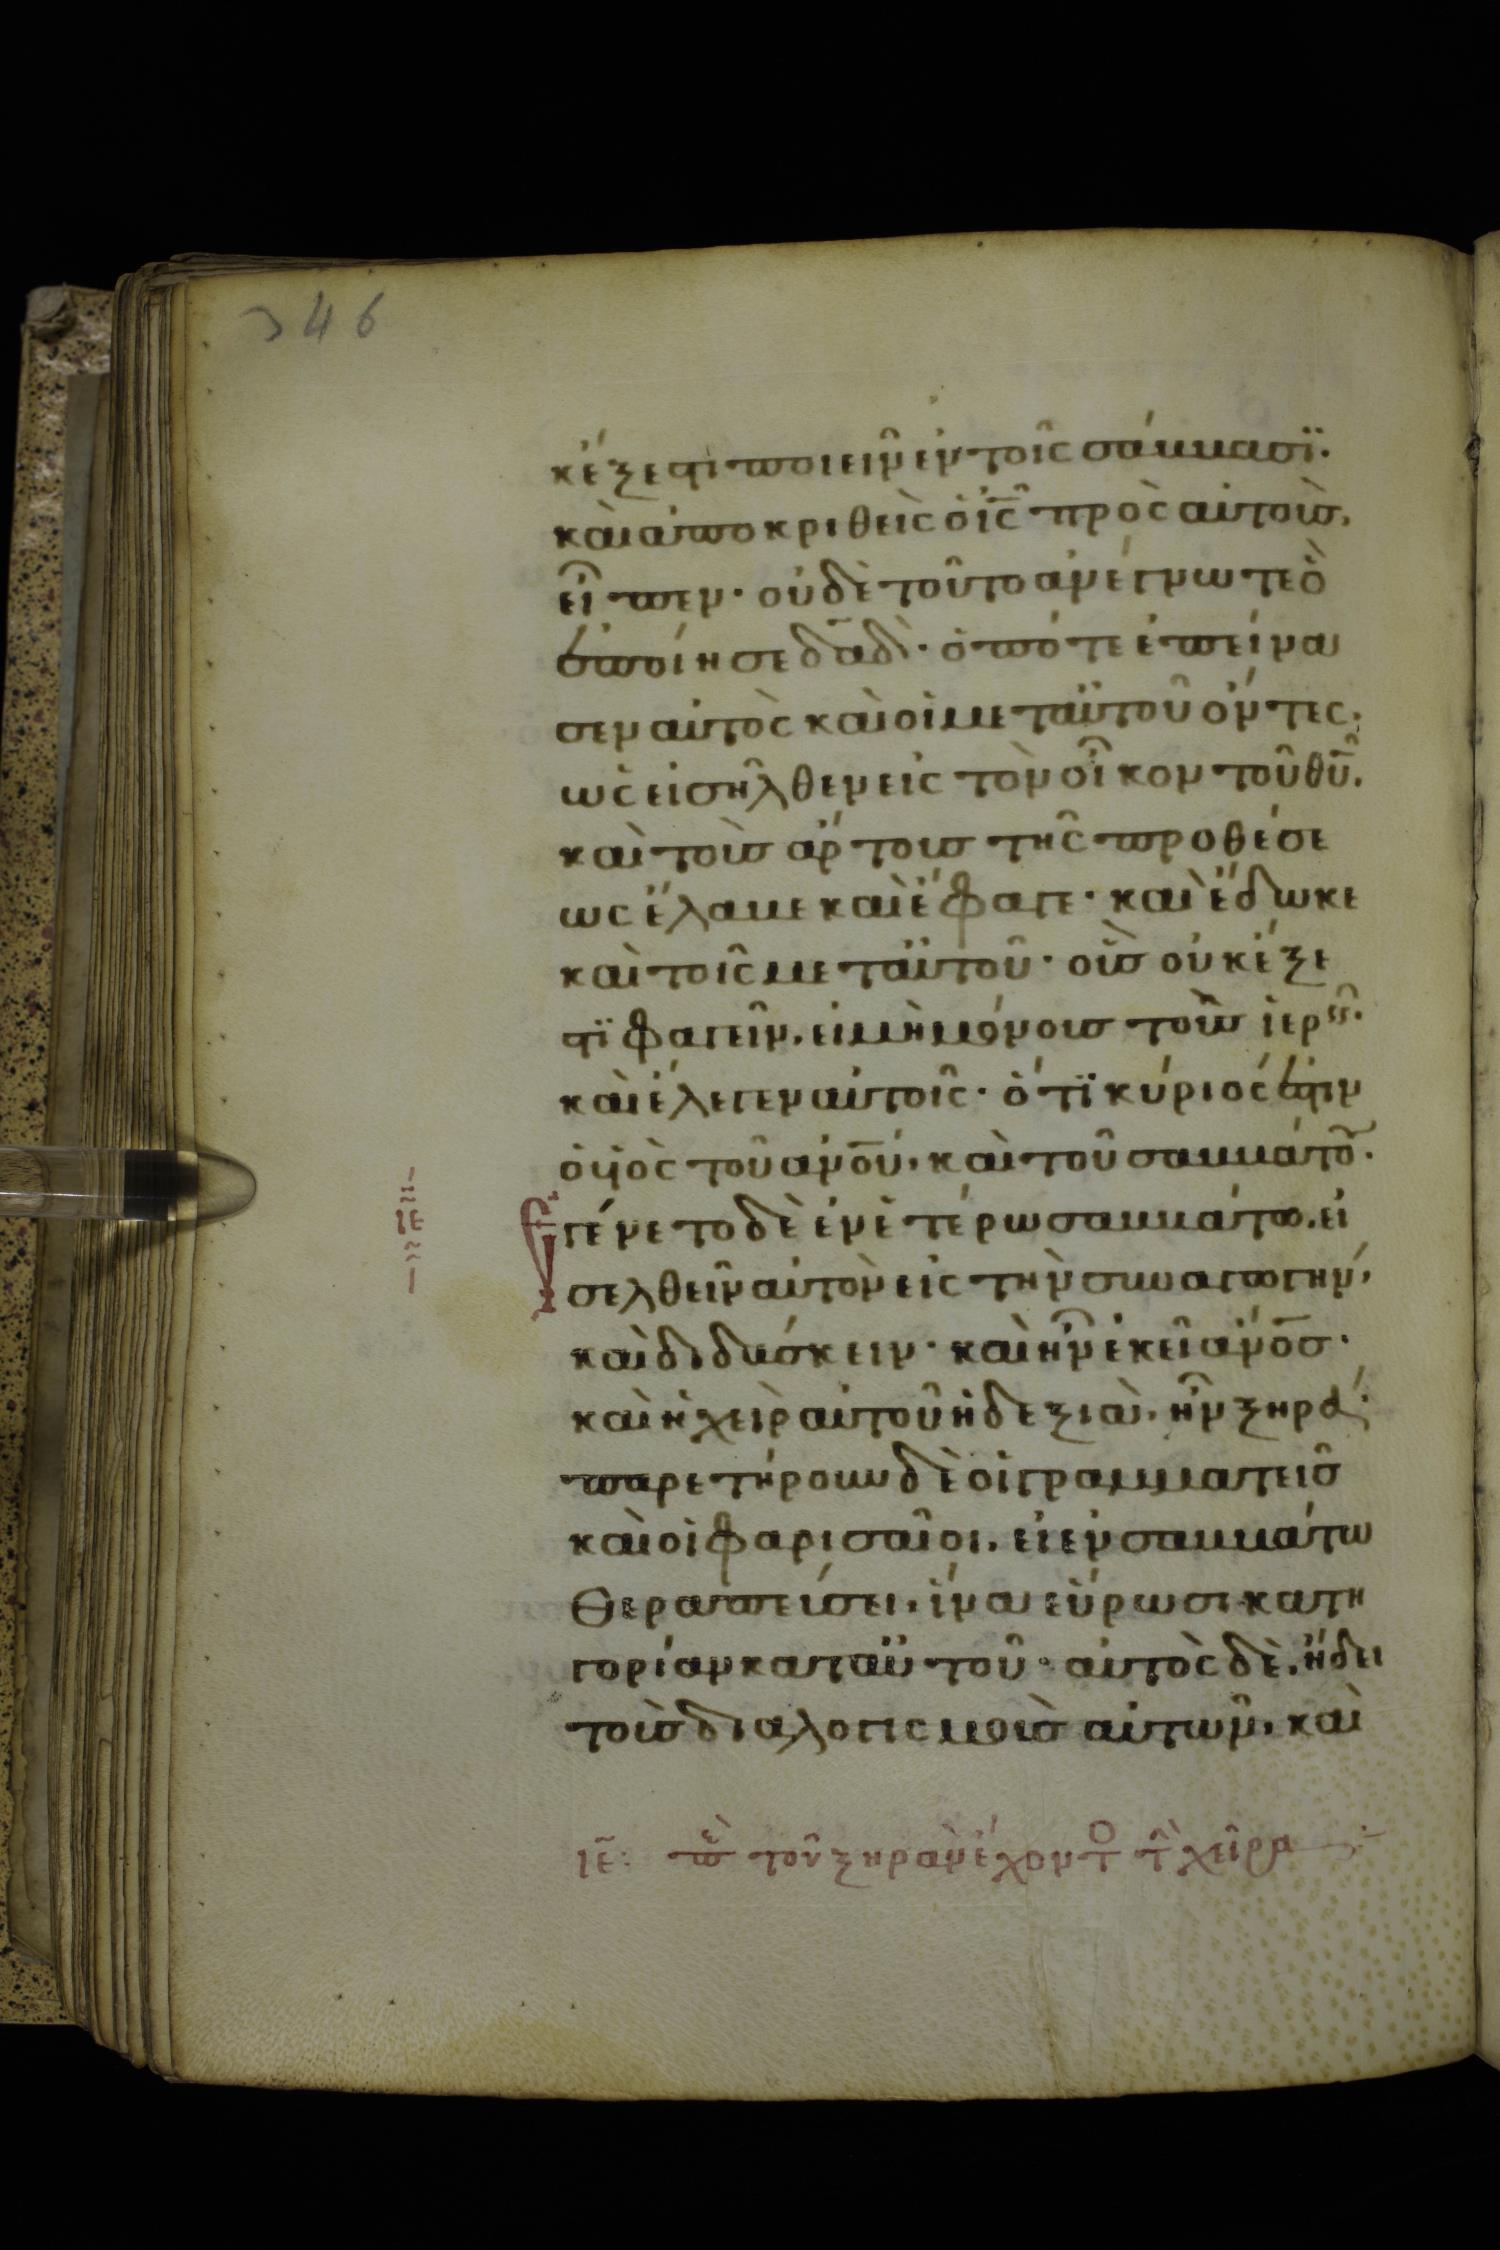 346
κ ἔξεστι ποιεῖν ἐν τοῖς σάββασϊ·
καὶ ἀποκριθεὶς ὁ ἰ̅ς̅ πρὸς αὐτοὺς,
εἶπεν· οὐδὲ τοῦτο ἀνέγνωτε ὃ
ἐποίησε δα̅δ̅· ὁπότε ἐπείνα
σεν αὐτὸς καὶ οἱ μετ αὐτοῦ ὄντες·
ὡς εἰσῆλθεν εἰς τὸν οἶκον τοῦ θ̅υ̅.
καὶ τοὺς ἄρτους τῆς προθέσε
ως ἔλαβε καὶ ἔφαγε· καὶ ἔδωκε
καὶ τοῖς μετ αὐτοῦ· οὓς οὐκ ἔξε
στϊ φαγεῖν, εἰ μὴ μόνους τοὺς ἱερεῖς·
καὶ ἔλεγεν αὐτοῖς· ὅτϊ κύριός ἐστιν
ὁ υἱὸς τοῦ α̅ν̅ο̅υ̅, καὶ τοῦ σαββάτου·
ιε
Ἐγένετο δὲ ἐν ἑτέρω σαββάτω, εἰ
σελθεῖν αὐτὸν εἰς τὴν συναγωγὴν,
καὶ διδάσκειν· καὶ ἦν ἐκεῖ α̅ν̅ο̅ς̅·
καὶ ἡ χεὶρ αὐτοῦ ἡ δεξιὰ, ἦν ξηρά·
παρετήρουν δὲ οἱ γραμματεῖς
καὶ οἱ φαρισαῖοι, εἰ ἐν σαββάτω
θεραπεύσει, ἵνα εὕρωσι κατη
γορίαν κατ αὐτοῦ· αὐτὸς δὲ, ἤδει
τοὺς διαλογισμοὺς αὐτῶν, καὶ
ιε: περὶ τοῦ ξηρὰν ἔχοντος τὴν χεῖρα